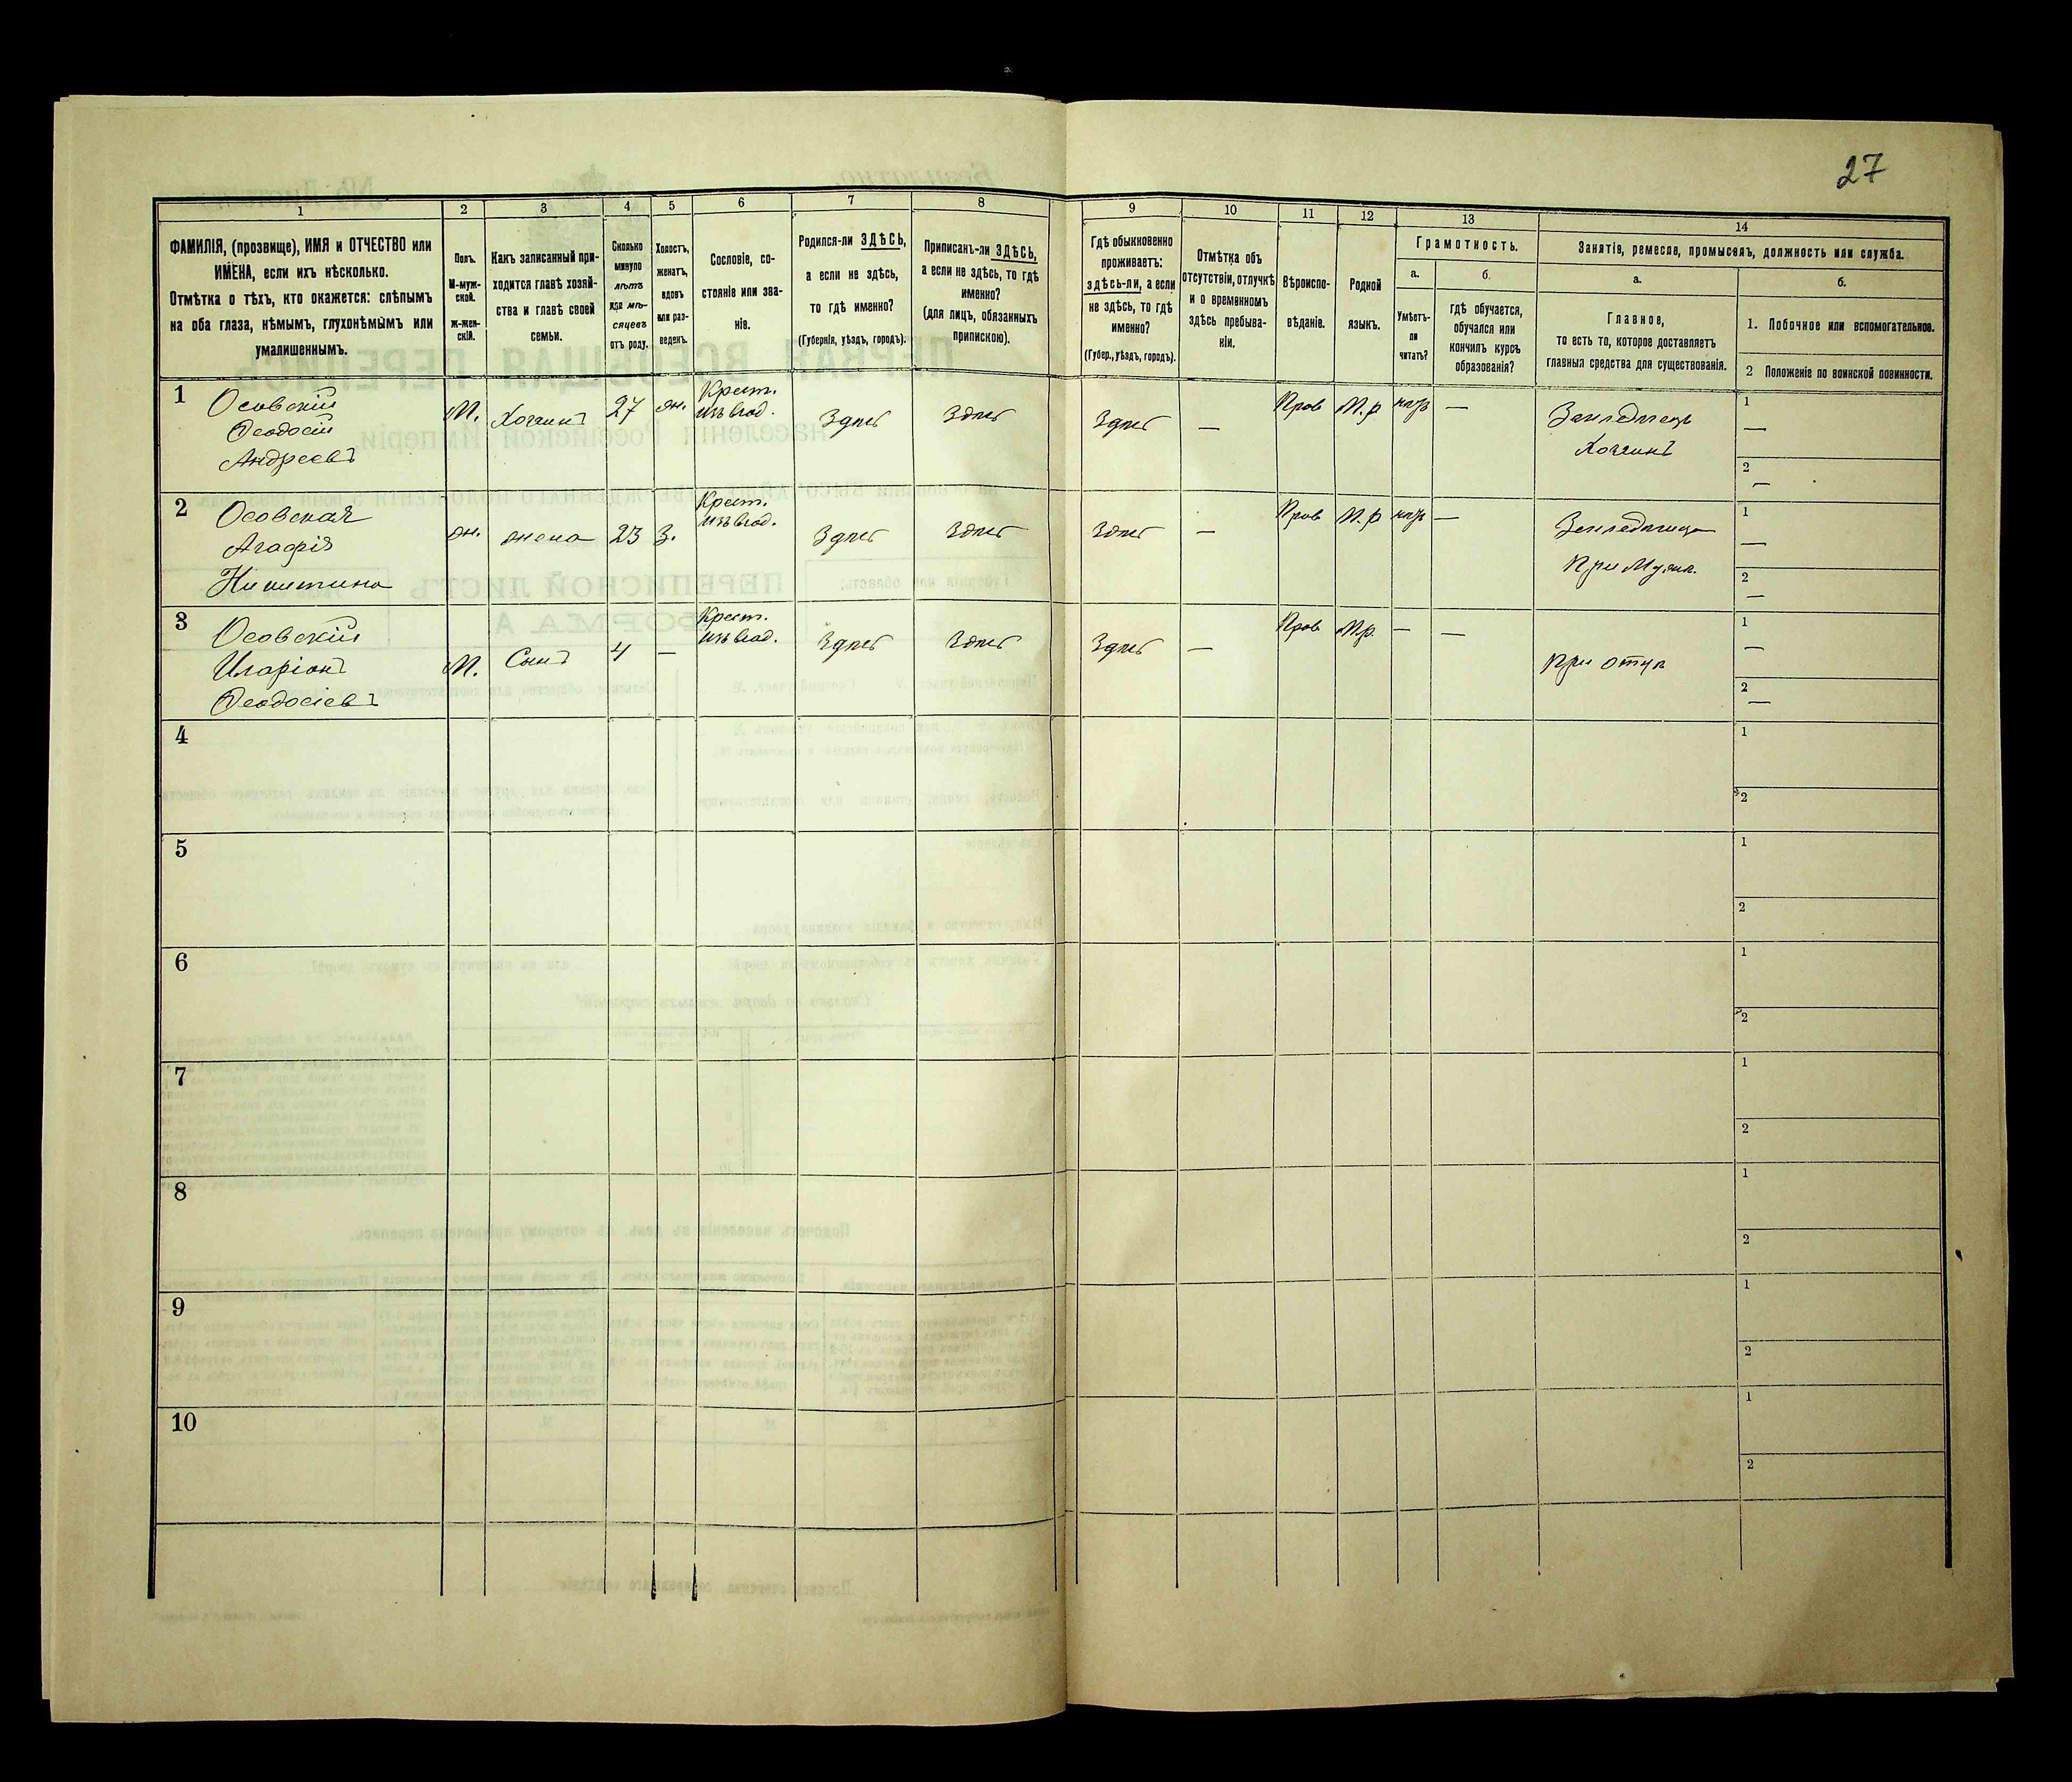 27
1 2 3 4 5 6 7 8 9 10 11 12 13 14
ФАМИЛІЯ, (прозвище), ИМЯ и ОТЧЕСТВО или
ИМЕНА, если ихъ нѣсколько.
Отмѣтка о тѣхъ, кто окажется: слѣпымъ
на оба глаза, нѣмымъ, глухонѣмымъ или
умалишеннымъ.
Полъ.
М-муж-
ской.
ж-жен-
скій.
Какъ записанный при-
ходится главѣ хозяй-
ства и главѣ своей
семьи.
Сколько
минуло
лѣтъ
или мѣ-
сяцевъ
отъ роду.
Холостъ,
женатъ,
вдовъ
или раз-
веденъ.
Сословіе, со-
стояніе или зва-
ніе.
Родился-ли ЗДѢСЬ,
а если не здѣсь,
то гдѣ именно?
(Губернія, уѣздъ, городъ).
Приписанъ-ли ЗДѢСЬ,
а если не здѣсь, то гдѣ
именно?
(для лицъ, обязанныхъ
припискою).
Гдѣ обыкновенно
проживаетъ:
здѣсь-ли, а если
не здѣсь, то гдѣ
именно?
(Губер., уѣздъ, городъ).
Отмѣтка объ
отсутствіи, отлучкѣ
и о временномъ
здѣсь пребыва-
ніи.
Вѣроиспо-
вѣданіе.
Родной
языкъ.
Грамотность.
а.
Умѣетъ-
ли
читать?
б.
гдѣ обучается,
обучался или
кончилъ курсъ
образованія?
Занятіе, ремесло, промыселъ, должность или служба.
а.
Главное,
то есть то, которое доставляетъ
главныя средства для существованія.
б.
1. Побочное или вспомогательное.
2 Положеніе по воинской повинности.
1
Осовскій
Ѳеодосій
Андреевъ
М.
Хозяинъ
27
ж.
Крест.
изъ влад.
Здѣсь
Здѣсь
Здѣсь
—
Прав
М.р
нѣтъ
—
Земледѣлецъ
Хозяинъ
1
—
2
—
2
Осовская
Агафія
Никитина
ж.
жена
23
З.
Крест.
изъ влад.
Здѣсь
Здѣсь
Здѣсь
—
Прав
М.р
нѣтъ
—
При Муж.
1
—
2
—
3
Осовскій
Иларіонъ
Ѳеодосіевъ
М.
Сынъ
4
—
Крест.
изъ влад.
Здѣсь
Здѣсь
Здѣсь
—
Прав
М.р.
—
—
при отцѣ
1
—
2
—
4
1
2
5
1
2
6
1
2
7
1
2
8
1
2
9
1
2
10
1
2